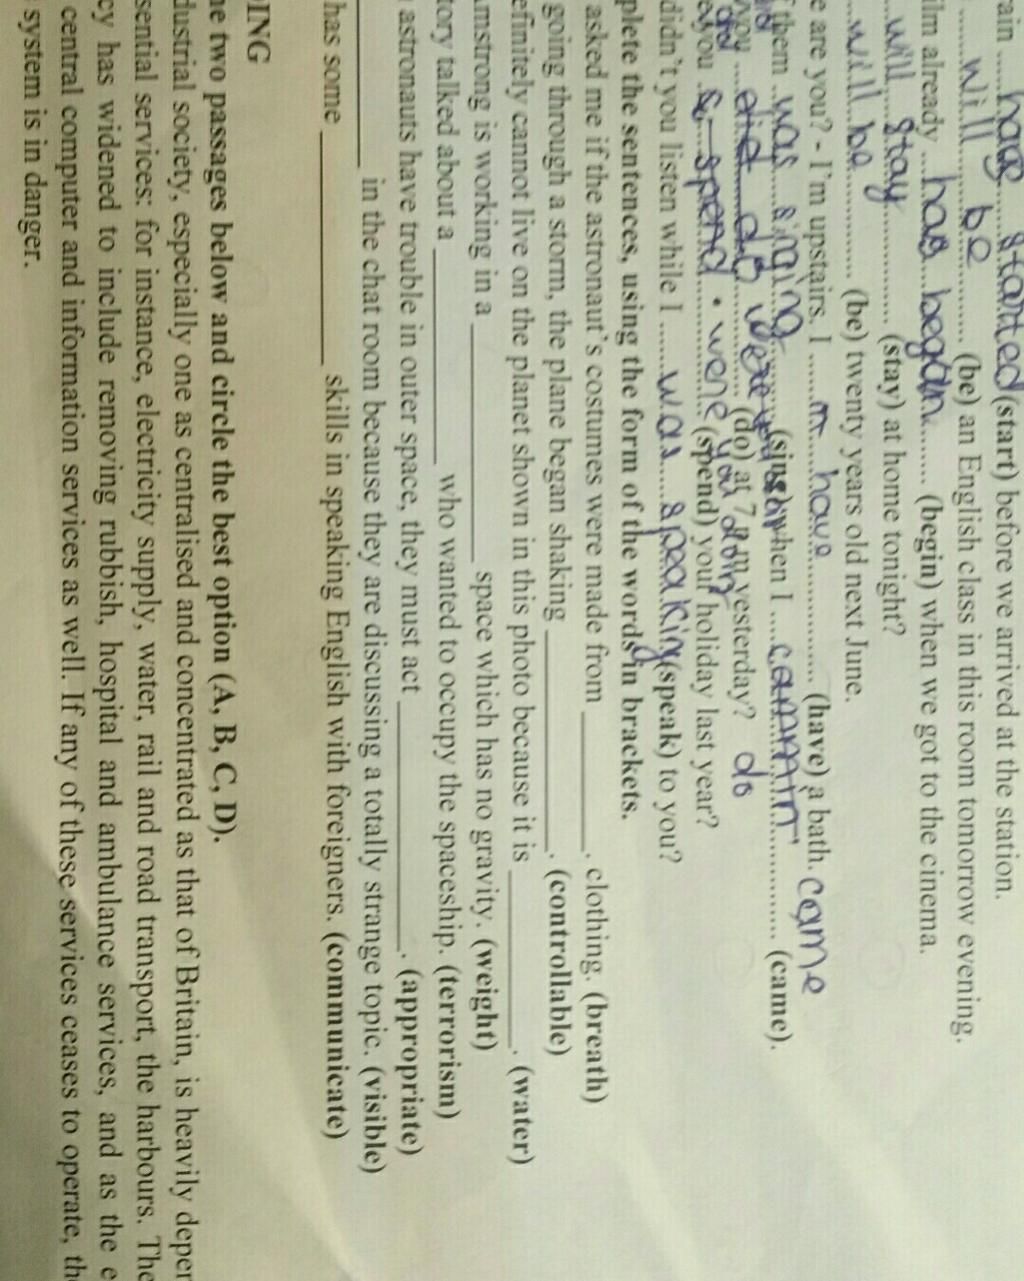 ain ... have started (start) before we arrived at the station.
... will be ... (be) an English class in this room tomorrow evening.
ilm already ... has began ... (begin) when we got to the cinema.
... will stay ... (stay) at home tonight?
... will be ... (be) twenty years old next June.
e are you? - I'm upstairs. I ... have ... (have) a bath. came
f them ... was singing ... when I ... (came).
you ... did do were you doing (do) at 7 p.m yesterday? do
you ... spend . were (spend) your holiday last year?
didn't you listen while I ... was speaking (speak) to you?
plete the sentences, using the form of the words in brackets.
asked me if the astronaut's costumes were made from ________. clothing. (breath)
going through a storm, the plane began shaking ________. (controllable)
efinitely cannot live on the planet shown in this photo because it is ________. (water)
mstrong is working in a ________ space which has no gravity. (weight)
tory talked about a ________ who wanted to occupy the spaceship. (terrorism)
astronauts have trouble in outer space, they must act ________. (appropriate)
________ in the chat room because they are discussing a totally strange topic. (visible)
has some ________ skills in speaking English with foreigners. (communicate)
DING
he two passages below and circle the best option (A, B, C, D).
dustrial society, especially one as centralised and concentrated as that of Britain, is heavily depen
sential services: for instance, electricity supply, water, rail and road transport, the harbours. The
cy has widened to include removing rubbish, hospital and ambulance services, and as the e
central computer and information services as well. If any of these services ceases to operate, the
system is in danger.